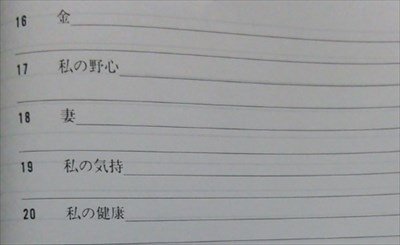 16 金
17 私の野心
18 妻
19 私の気持
20 私の健康